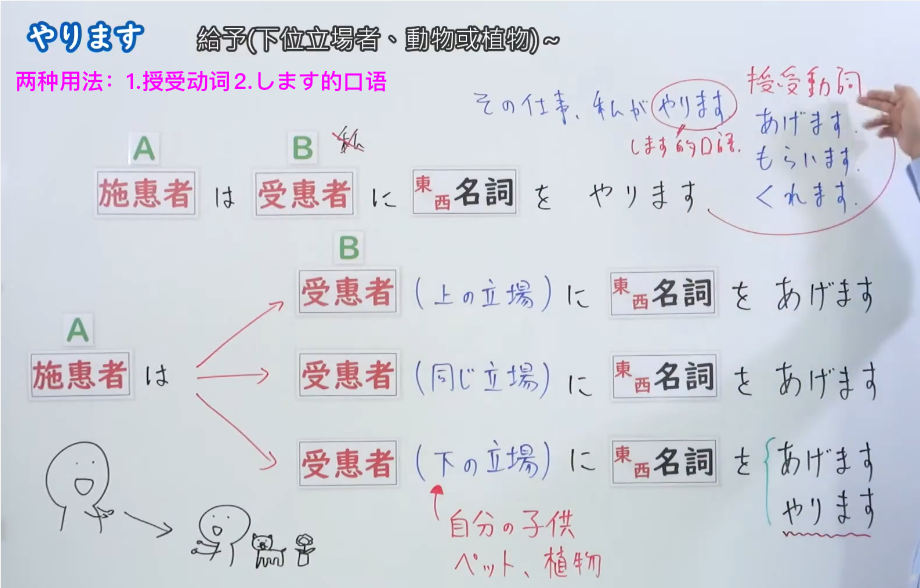 やります 給予(下位立場者、動物或植物)~
两种用法：1.授受动词2.します的口语
その仕事、私がやります
します的口語.
授受動詞
あげます.
もらいます.
くれます.
A
B 私
施惠者 は 受惠者 に 東西名詞 を やります
B
受惠者 (上の立場) に 東西名詞 を あげます
A
施惠者 は 受惠者 (同じ立場) に 東西名詞 を あげます
受惠者 (下の立場) に 東西名詞 を あげます
やります
自分の子供
ペット、植物